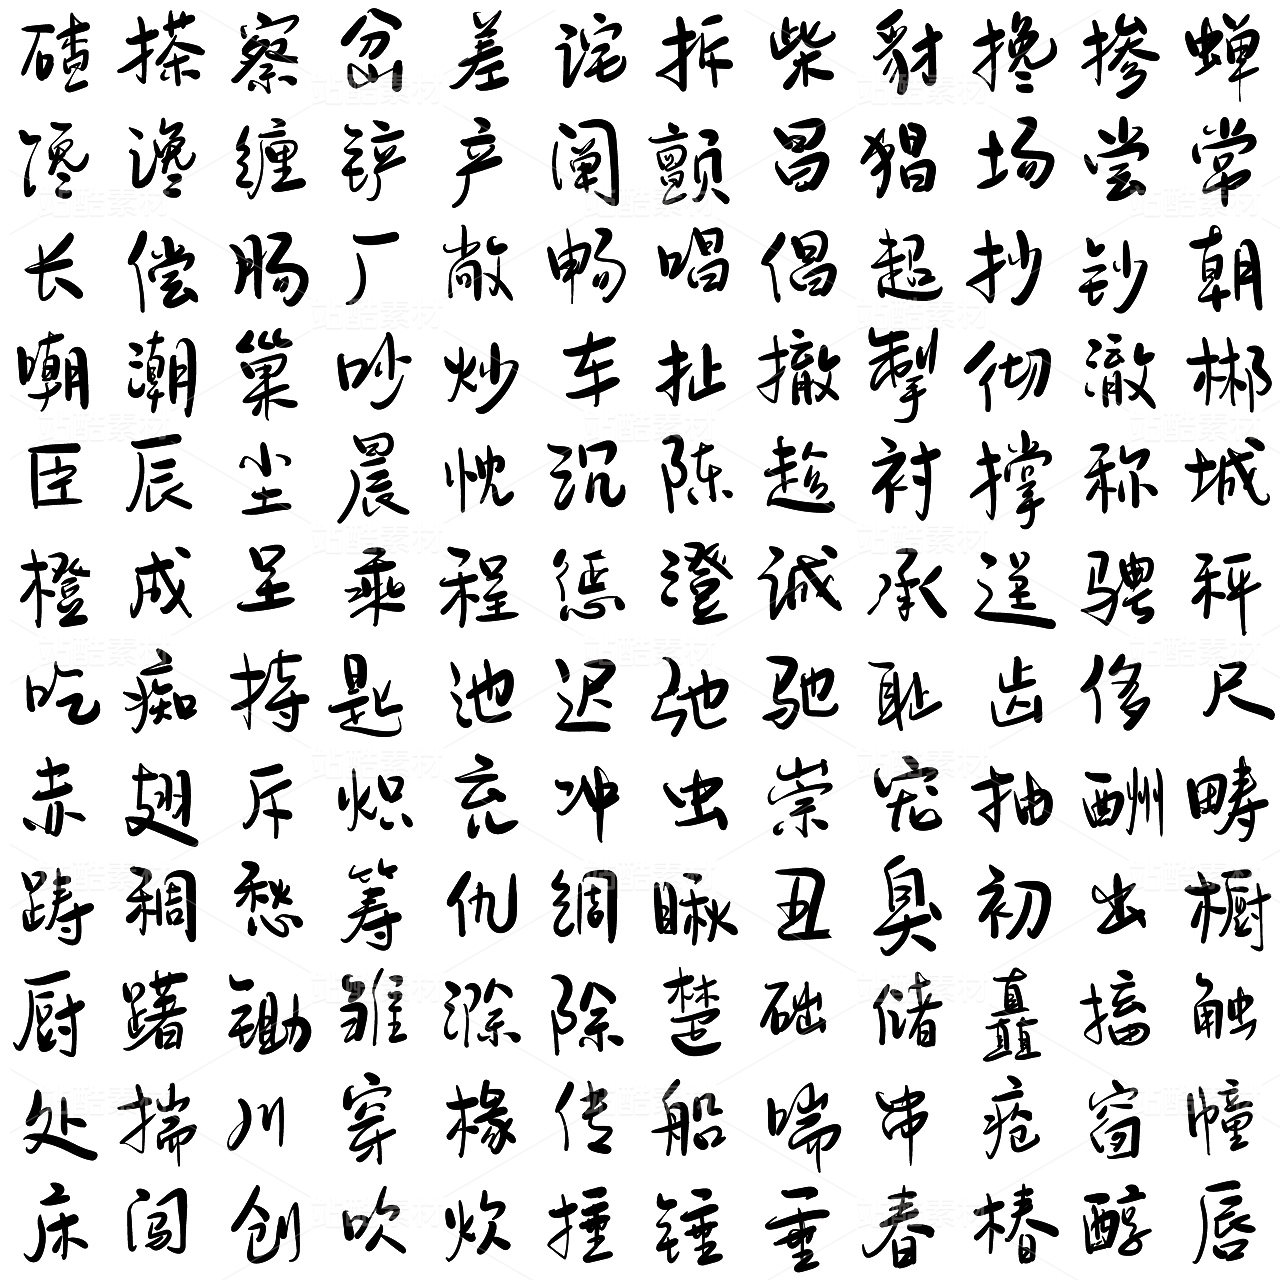 碴搽察岔差诧拆柴豺搀掺蝉
馋谗缠铲产阐颤昌猖场尝常
长偿肠厂敞畅唱倡超抄钞朝
嘲潮巢吵炒车扯撤掣彻澈郴
臣辰尘晨忱沉陈趁衬撑称城
橙成呈乘程惩澄诚承逞骋秤
吃痴持匙池迟弛驰耻齿侈尺
赤翅斥炽充冲虫崇宠抽酬畴
踌稠愁筹仇绸瞅丑臭初出橱
厨躇锄雏滁除楚础储矗搐触
处揣川穿椽传船喘串疮窗幢
床闯创吹炊捶锤垂春椿醇唇